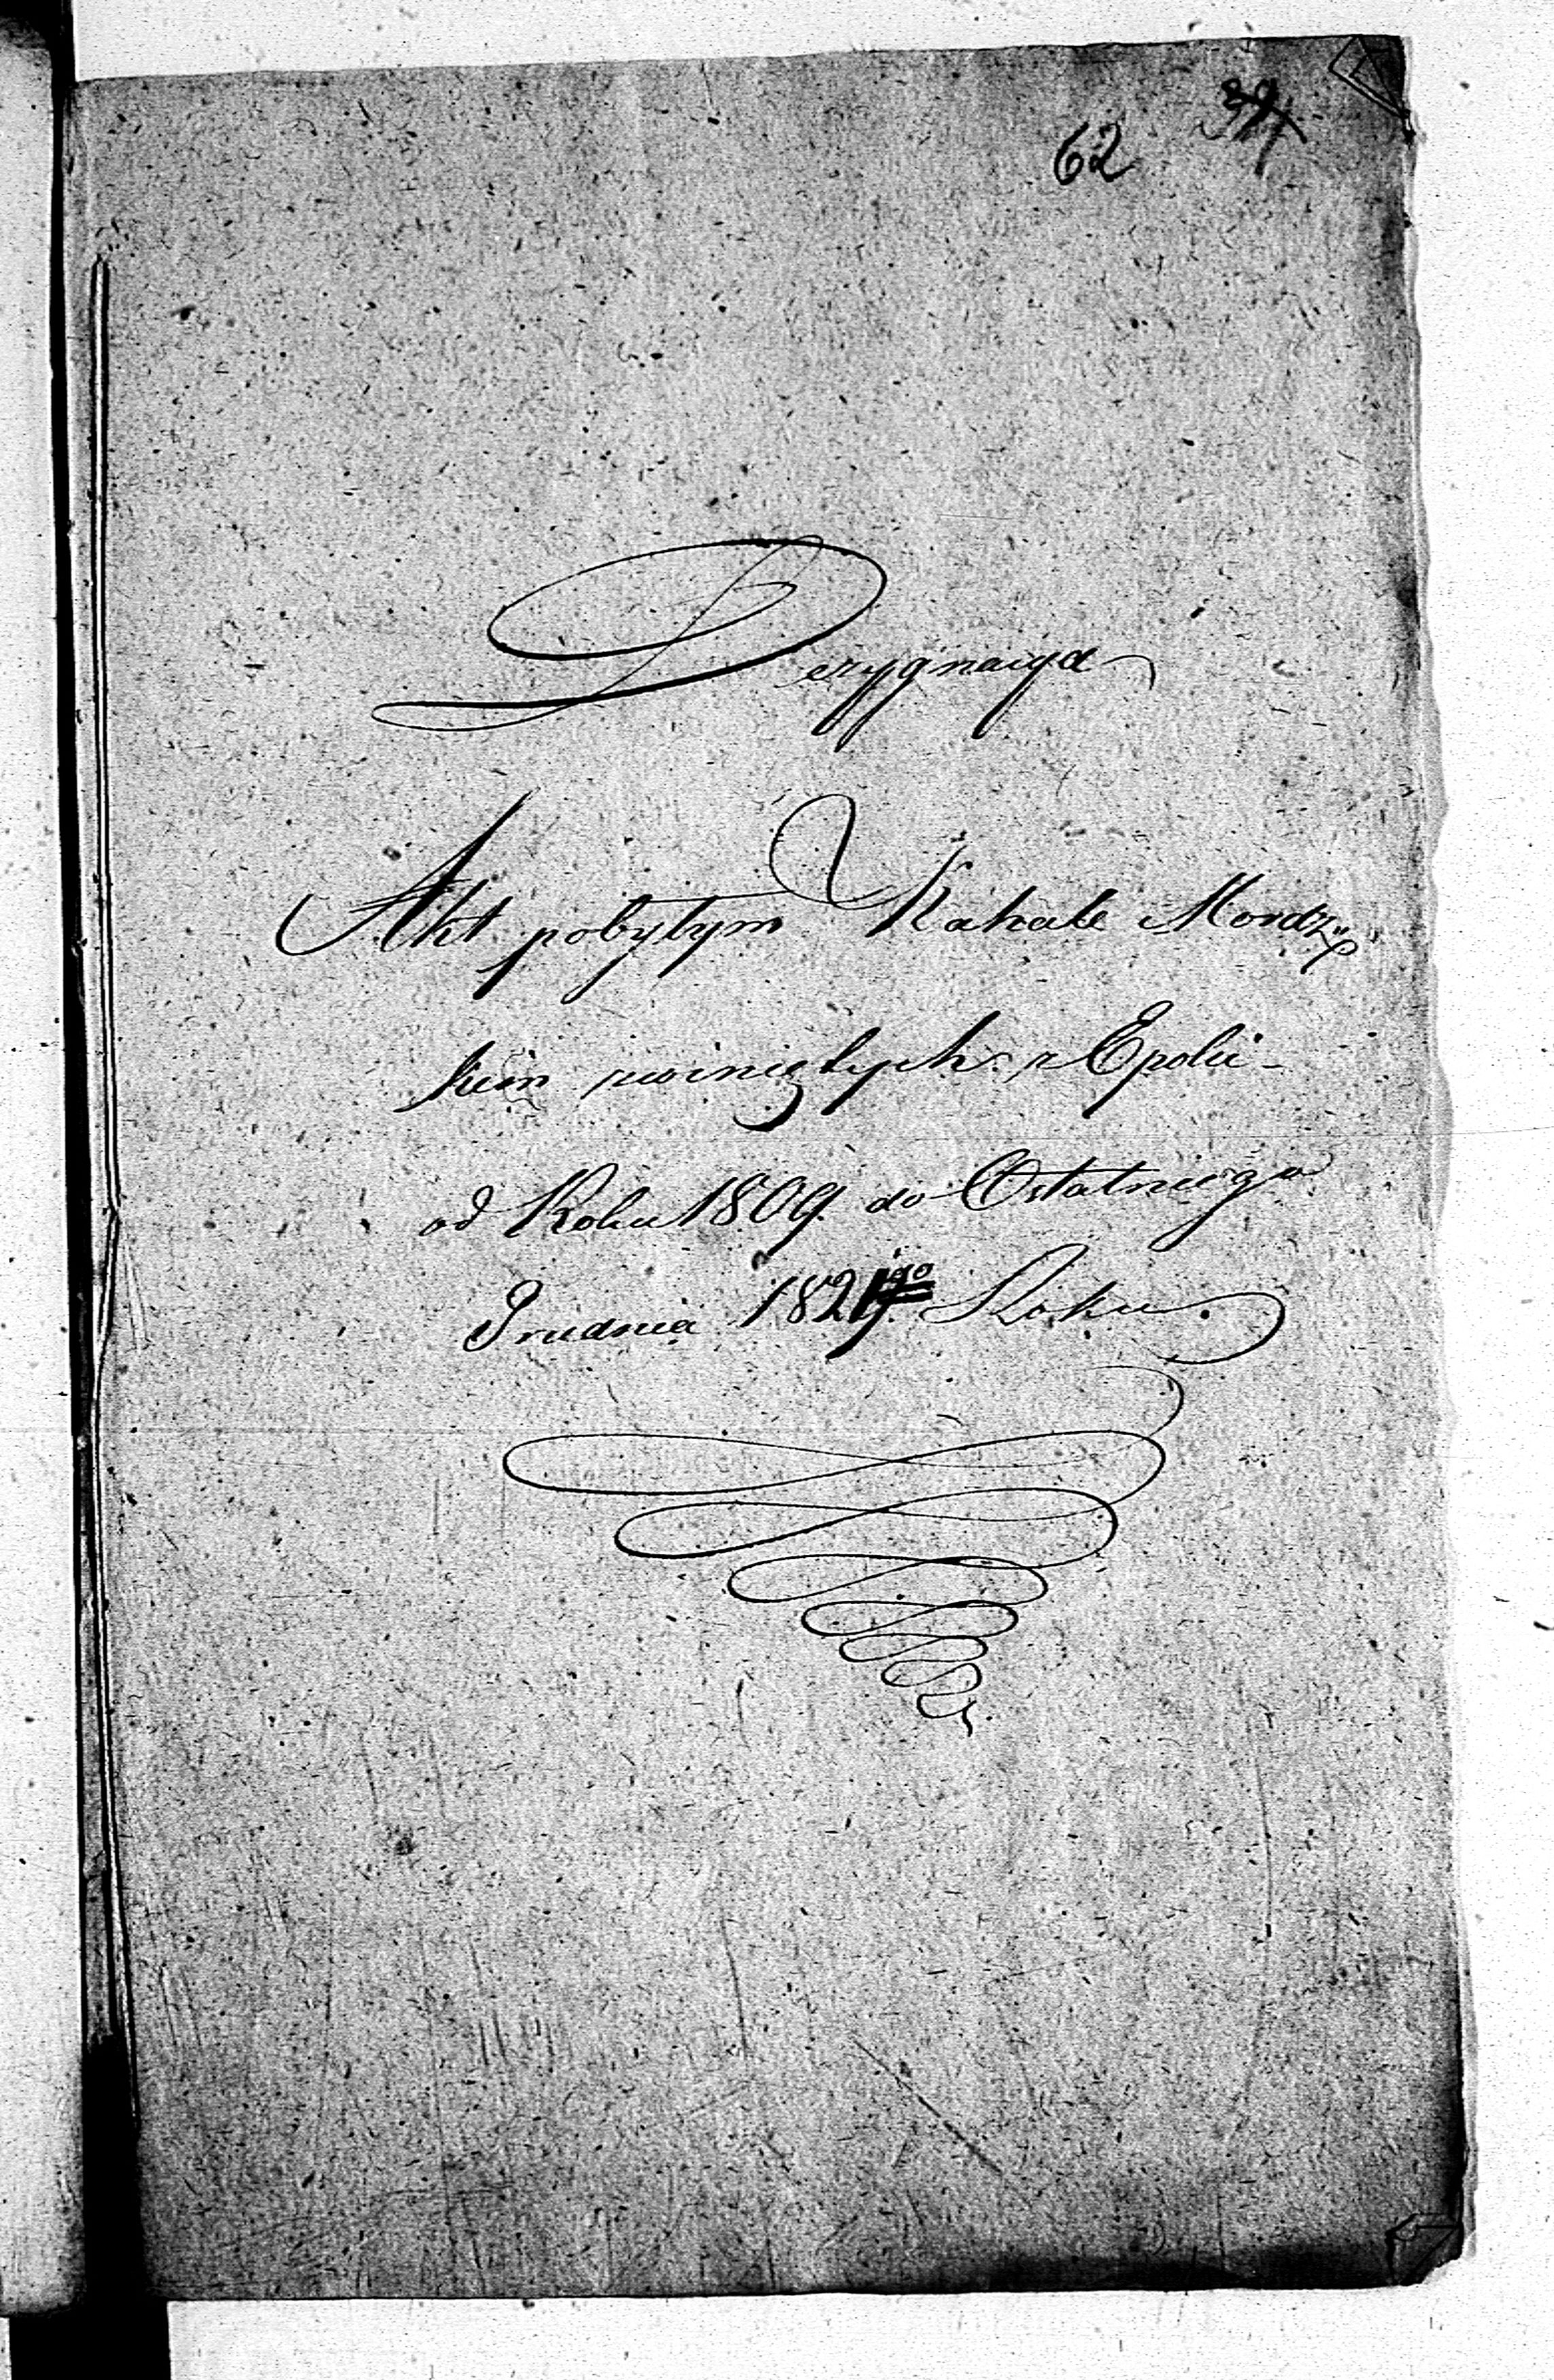 62 39
Dezygnacya
Akt pobyłym Kahale Mordz„
kim zwinięłych z Epoki
od Roku 1809. do Ostatniego
Grudnia 1821go Roku.